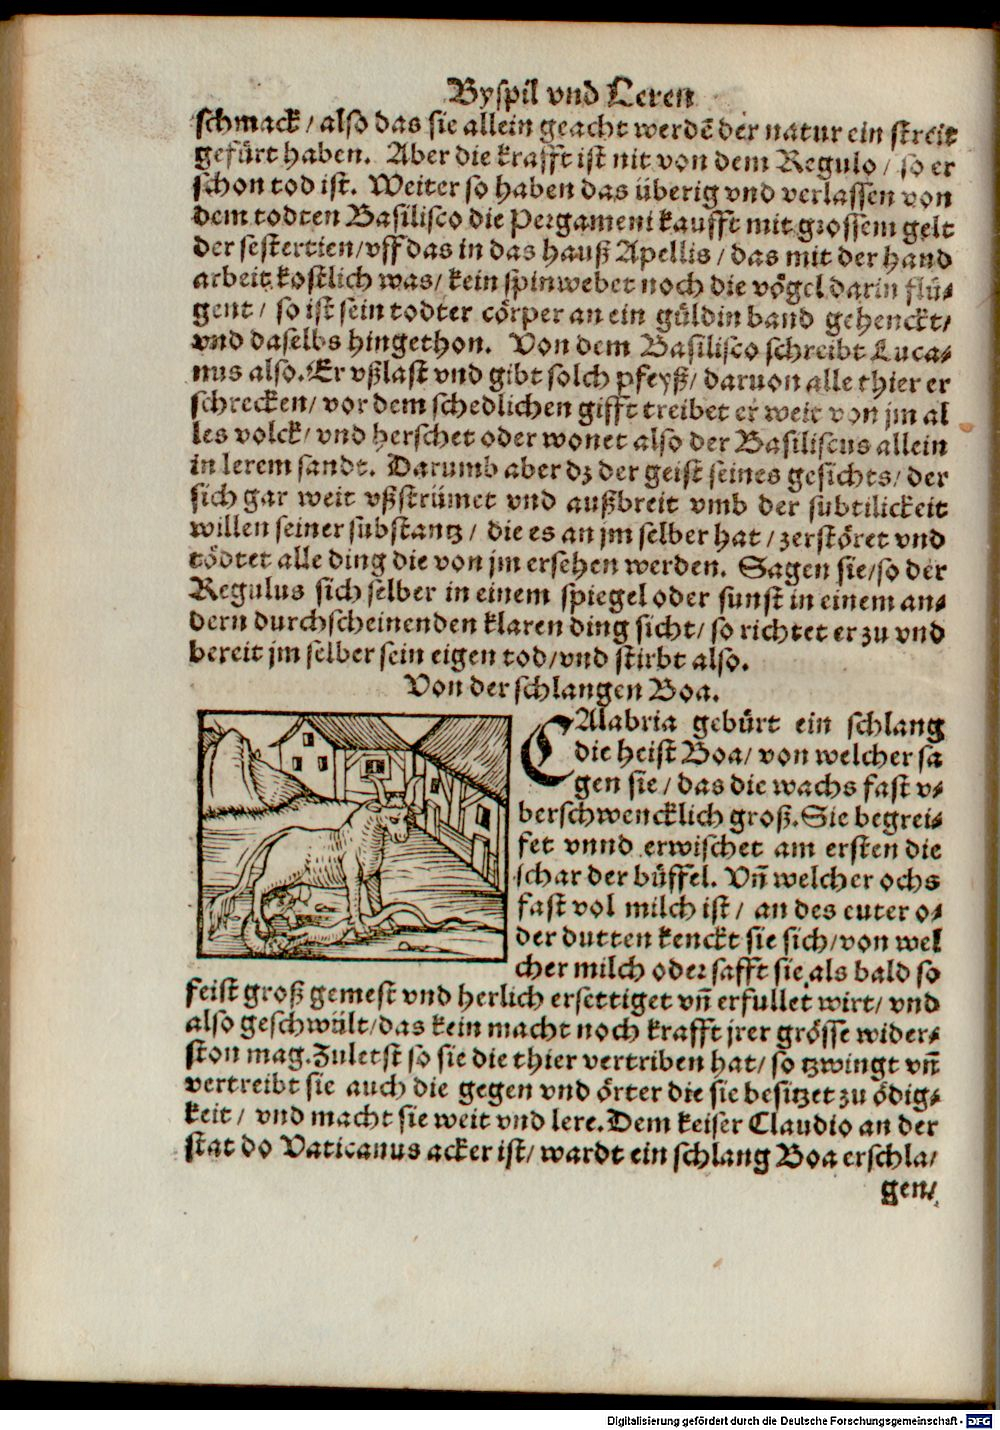 Byspil vnd Leren
schmack / also das sie allein geacht werdē der natur ein streit
gefürt haben. Aber die krafft ist nit von dem Regulo / so er
schon tod ist. Weiter so haben das überig vnd verlassen von
dem todten Basilisco die Pergameni kaufft mit grossem gelt
der sestertien / vff das in das hauß Apellis / das mit der hand
arbeit kostlich was / kein spinwebet noch die vögel darin flü⸗
gent / so ist sein todter cörper an ein güldin band gehenckt /
vnd daselbs hingethon. Von dem Basilisco schreibt Luca⸗
nus also. Er vßlast vnd gibt solch pfeyß / daruon alle thier er
schrecken / vor dem schedlichen gifft treibet er weit von jm al
les volck / vnd herschet oder wonet also der Basiliscus allein
in lerem sandt. Darumb aber dz der geist seines gesichts / der
sich gar weit vßströmet vnd außbreit vmb der subtilickeit
willen seiner substantz / die es an jm selber hat / zerstöret vnd
tödtet alle ding die von jm ersehen werden. Sagen sie / so der
Regulus sich selber in einem spiegel oder sunst in einem an⸗
dern durchscheinenden klaren ding sicht / so richtet er zu vnd
bereit jm selber sein eigen tod / vnd stirbt also.
Von der schlangen Boa.
CAlabria gebürt ein schlang
die heist Boa / von welcher sa
gen sie / das die wachs fast v⸗
berschwencklich groß. Sie begrei⸗
fet vnnd erwischet am ersten die
schar der büffel. Vñ welcher ochs
fast vol milch ist / an des euter o⸗
der dutten henckt sie sich / von wel
cher milch oder safft sie als bald so
feist groß gemest vnd herlich ersettiget vñ erfullet wirt / vnd
also geschwült / das kein macht noch krafft jrer grösse wider⸗
ston mag. Zuletst so sie die thier vertriben hat / so tzwingt vñ
vertreibt sie auch die gegen vnd örter die sie besitzet zu ödig⸗
keit / vnd macht sie weit vnd lere. Dem keiser Claudio an der
stat do Vaticanus acker ist / wardt ein schlang Boa erschla /
gen /
Digitalisierung gefördert durch die Deutsche Forschungsgemeinschaft - DFG